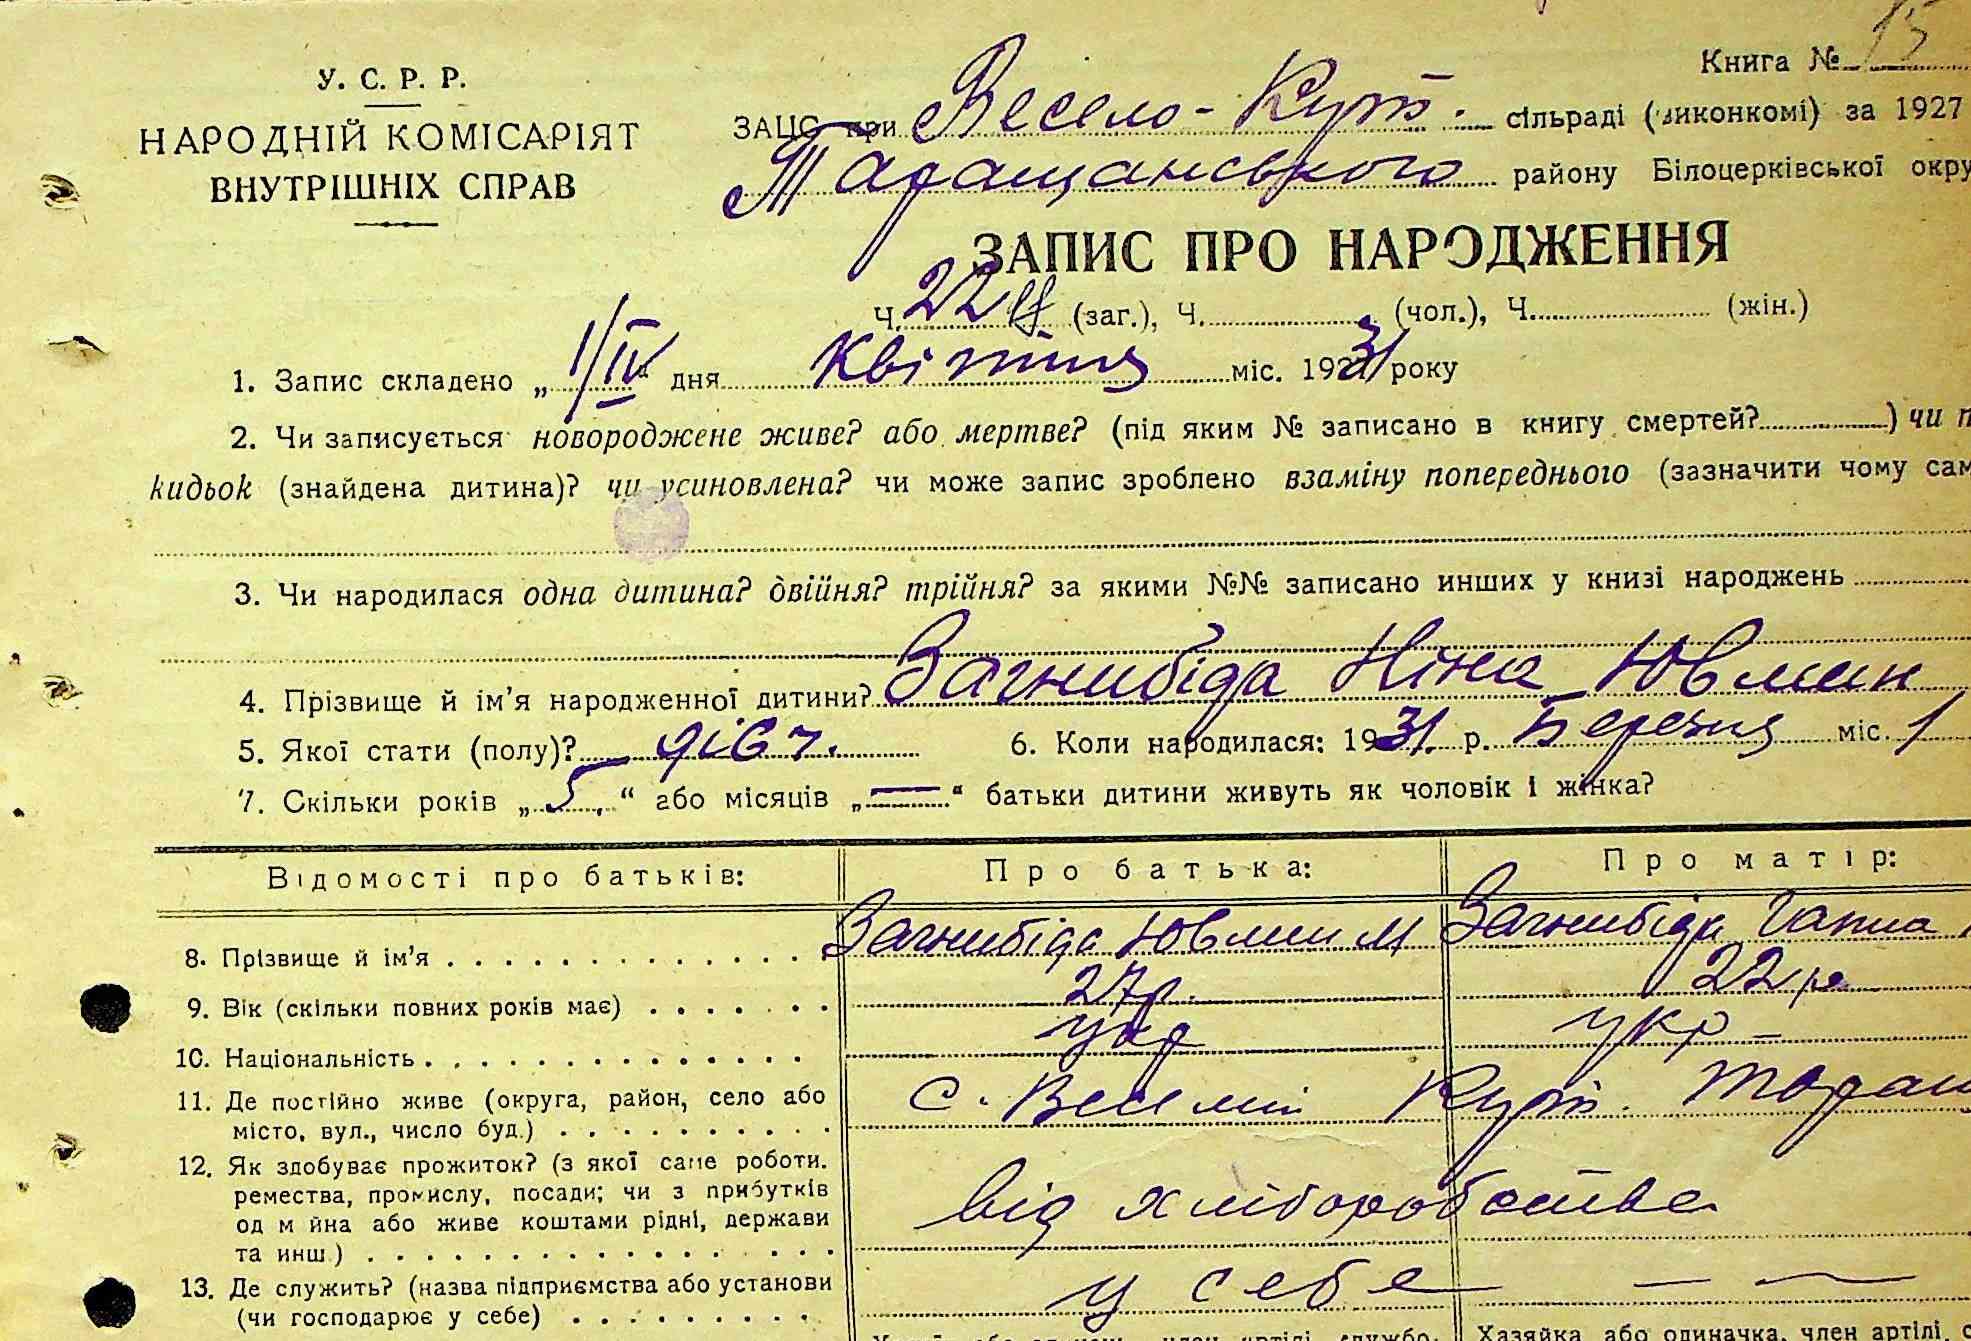 Книга № 15
У. С. Р. Р.
НАРОДНІЙ КОМІСАРІЯТ
ВНУТРІШНІХ СПРАВ
ЗАЦС при Весело-Кут. сільраді (виконкомі) за 1927
Таращанського району Білоцерківської окру
ЗАПИС ПРО НАРОДЖЕННЯ
Ч. 22 (заг.), Ч. (чол.), Ч. (жін.)
1. Запис складено „1/IV“ дня Квітня міс. 1931 року
2. Чи записується новороджене живе? або мертве? (під яким № записано в книгу смертей? ) чи п
кидьок (знайдена дитина)? чи усиновлена? чи може запис зроблено взаміну попереднього (зазначити чому сам
3. Чи народилася одна дитина? двійня? трійня? за якими №№ записано инших у книзі народжень
4. Прізвище й ім’я народженної дитини? Загнибіда Ніна Ювмин
5. Якої стати (полу)? дівч. 6. Коли народилася: 1931 р. Березня міс. 1
7. Скільки років „5“ або місяців „—“ батьки дитини живуть як чоловік і жінка?
Відомості про батьків: Про батька: Про матір:
8. Прізвище й ім’я Загнибіда Ювмин М Загнибіда Ганна
9. Вік (скільки повних років має) 27р. 22 р.
10. Національність укр укр –
11. Де постійно живе (округа, район, село або
місто, вул., число буд.) с. Веселий Кут. Таращ
12. Як здобуває прожиток? (з якої саме роботи,
ремества, промислу, посади; чи з прибутків
од майна або живе коштами рідні, держави
та инш.) від хліборобства
13. Де служить? (назва підприємства або установи
(чи господарює у себе) у себе — —
Хазяйка або одиначка, член артілі, с